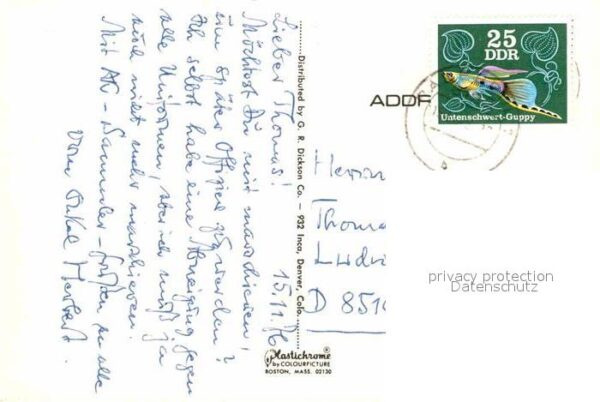 Lieber Thomas! 15.11.76
Möchtest Du mit marschieren,
um später Offizier zu werden?
Ich selbst habe eine Abneigung gegen
alle Uniformen, aber ich muß ja
auch nicht mehr marschieren.
Mit AK-Sammler-Grüßen an alle
vom Onkel Herbert.
Distributed by G. R. Dickson Co. — 932 Inca, Denver, Colo.
Plastichrome®
by COLOURPICTURE
BOSTON, MASS. 02130
25
DDR
Untenschwert-Guppy
ADDR
Herrn
Thoma
Ludwi
D 8510
privacy protection
Datenschutz